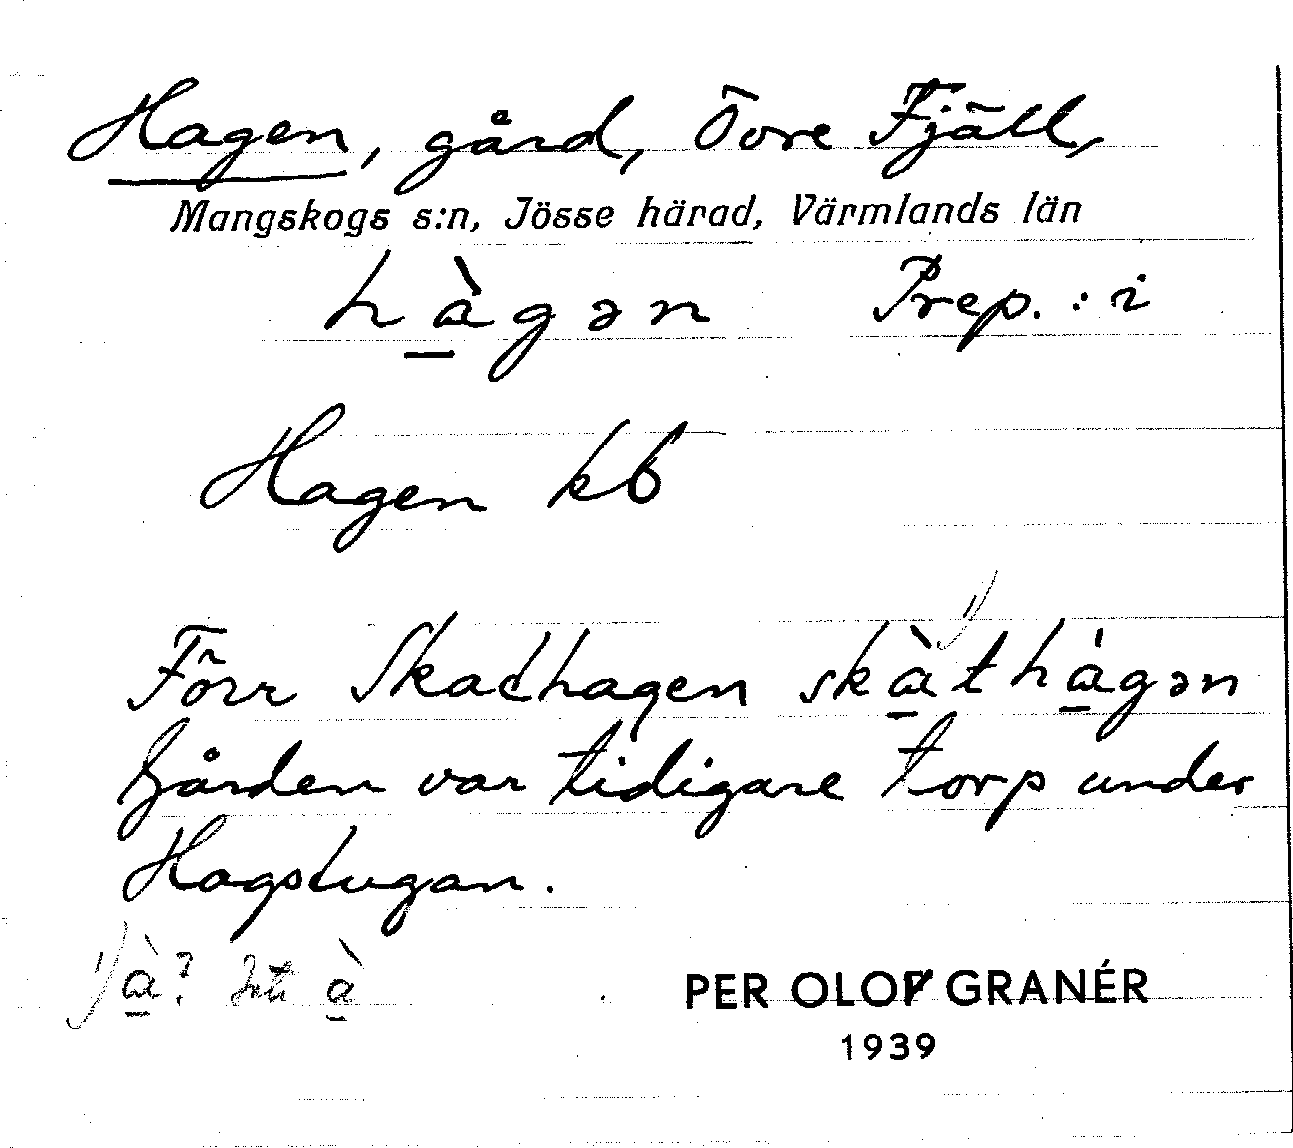 Hagen, gård, Övre Fjäll,
Mangskogs s:n, Jösse härad, Värmlands län
hà̱gən Prep.: i
Hagen kb
Förr Skadhagen skà̱thà̱gən 1)
Gården var tidigare torp under
Hagstugan.
1) à̱? Inte à̱
PER OLOF GRANÉR
1939